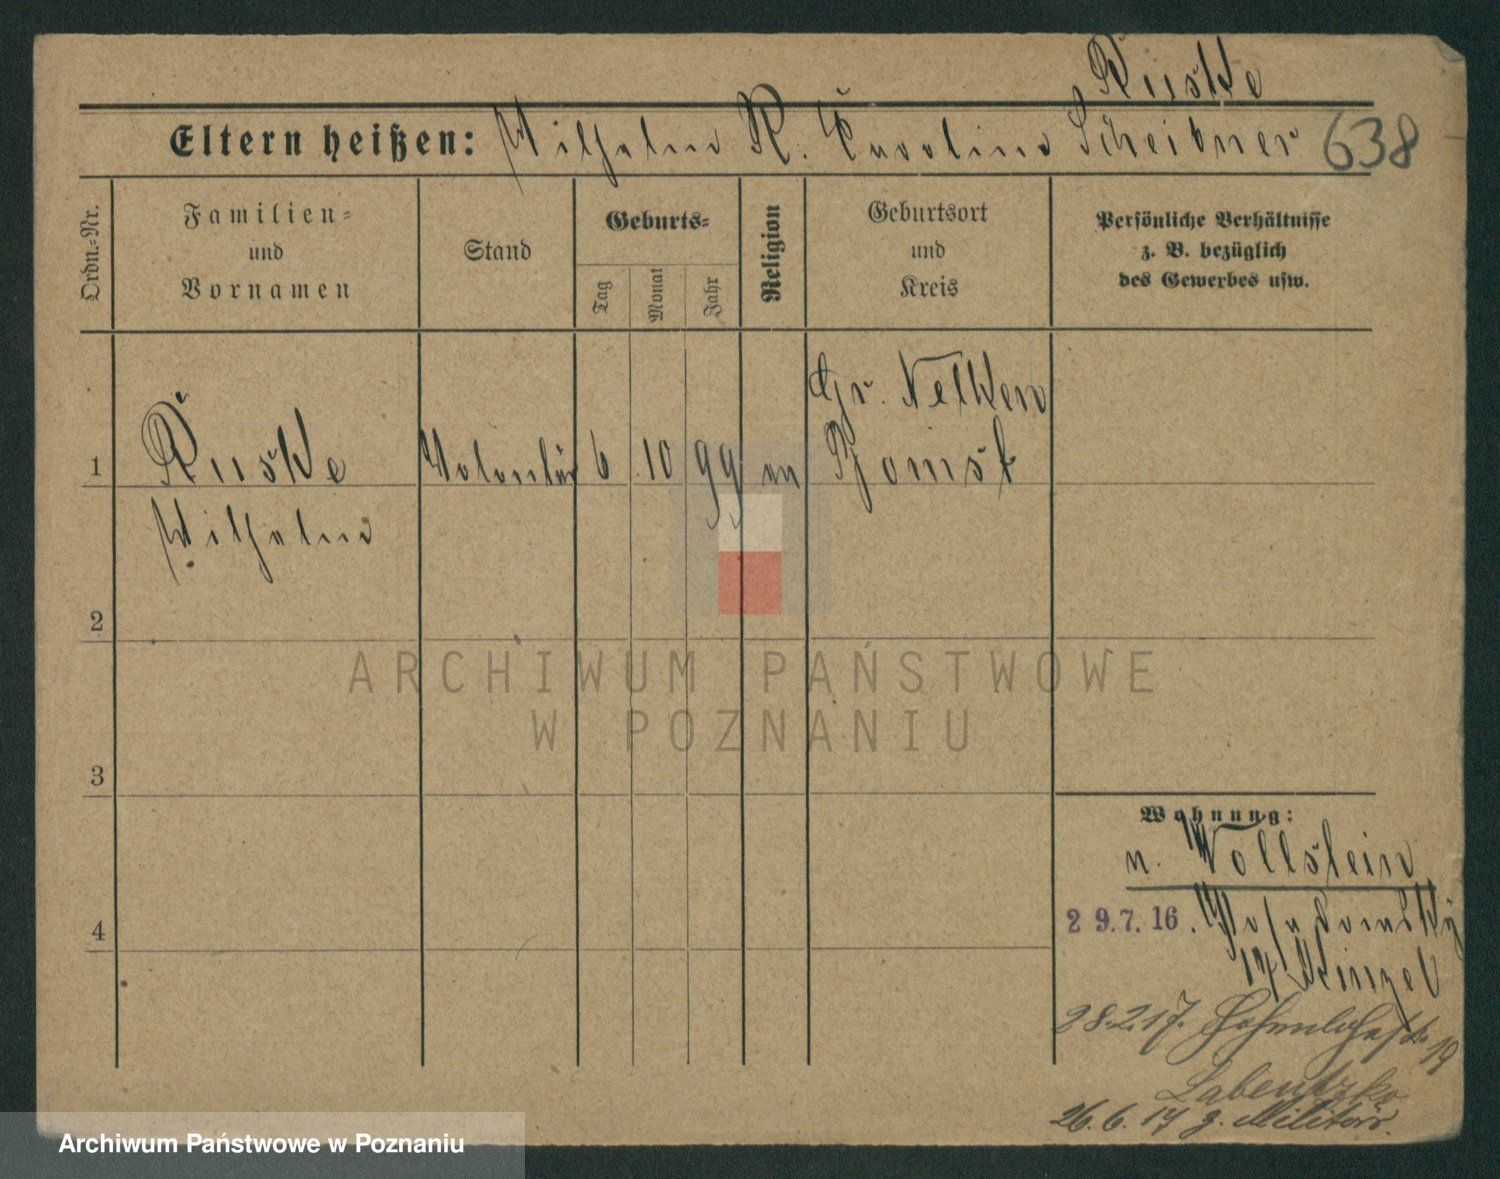 Ruske
Eltern heißen: Wilhelm R. Caroline Scheibner 638
Ordn.=Nr.
Familien=
und
Vornamen
Stand
Geburts=
Tag
Monat
Jahr
Religion
Geburtsort
und
Kreis
Persönliche Verhältnisse
z. B. bezüglich
des Gewerbes usw.
Gr. Nelken
1 Ruske Volontär 6 10 99 ev Bomst
Wilhelm
2
ARCHIWUM PAŃSTWOWE
W POZNANIU
3
4
Wohnung:
n. Wollstein
29.7.16.
17/
28.2.17. 19
Labentzke
26.6.17 z. Militär.
Archiwum Państwowe w Poznaniu